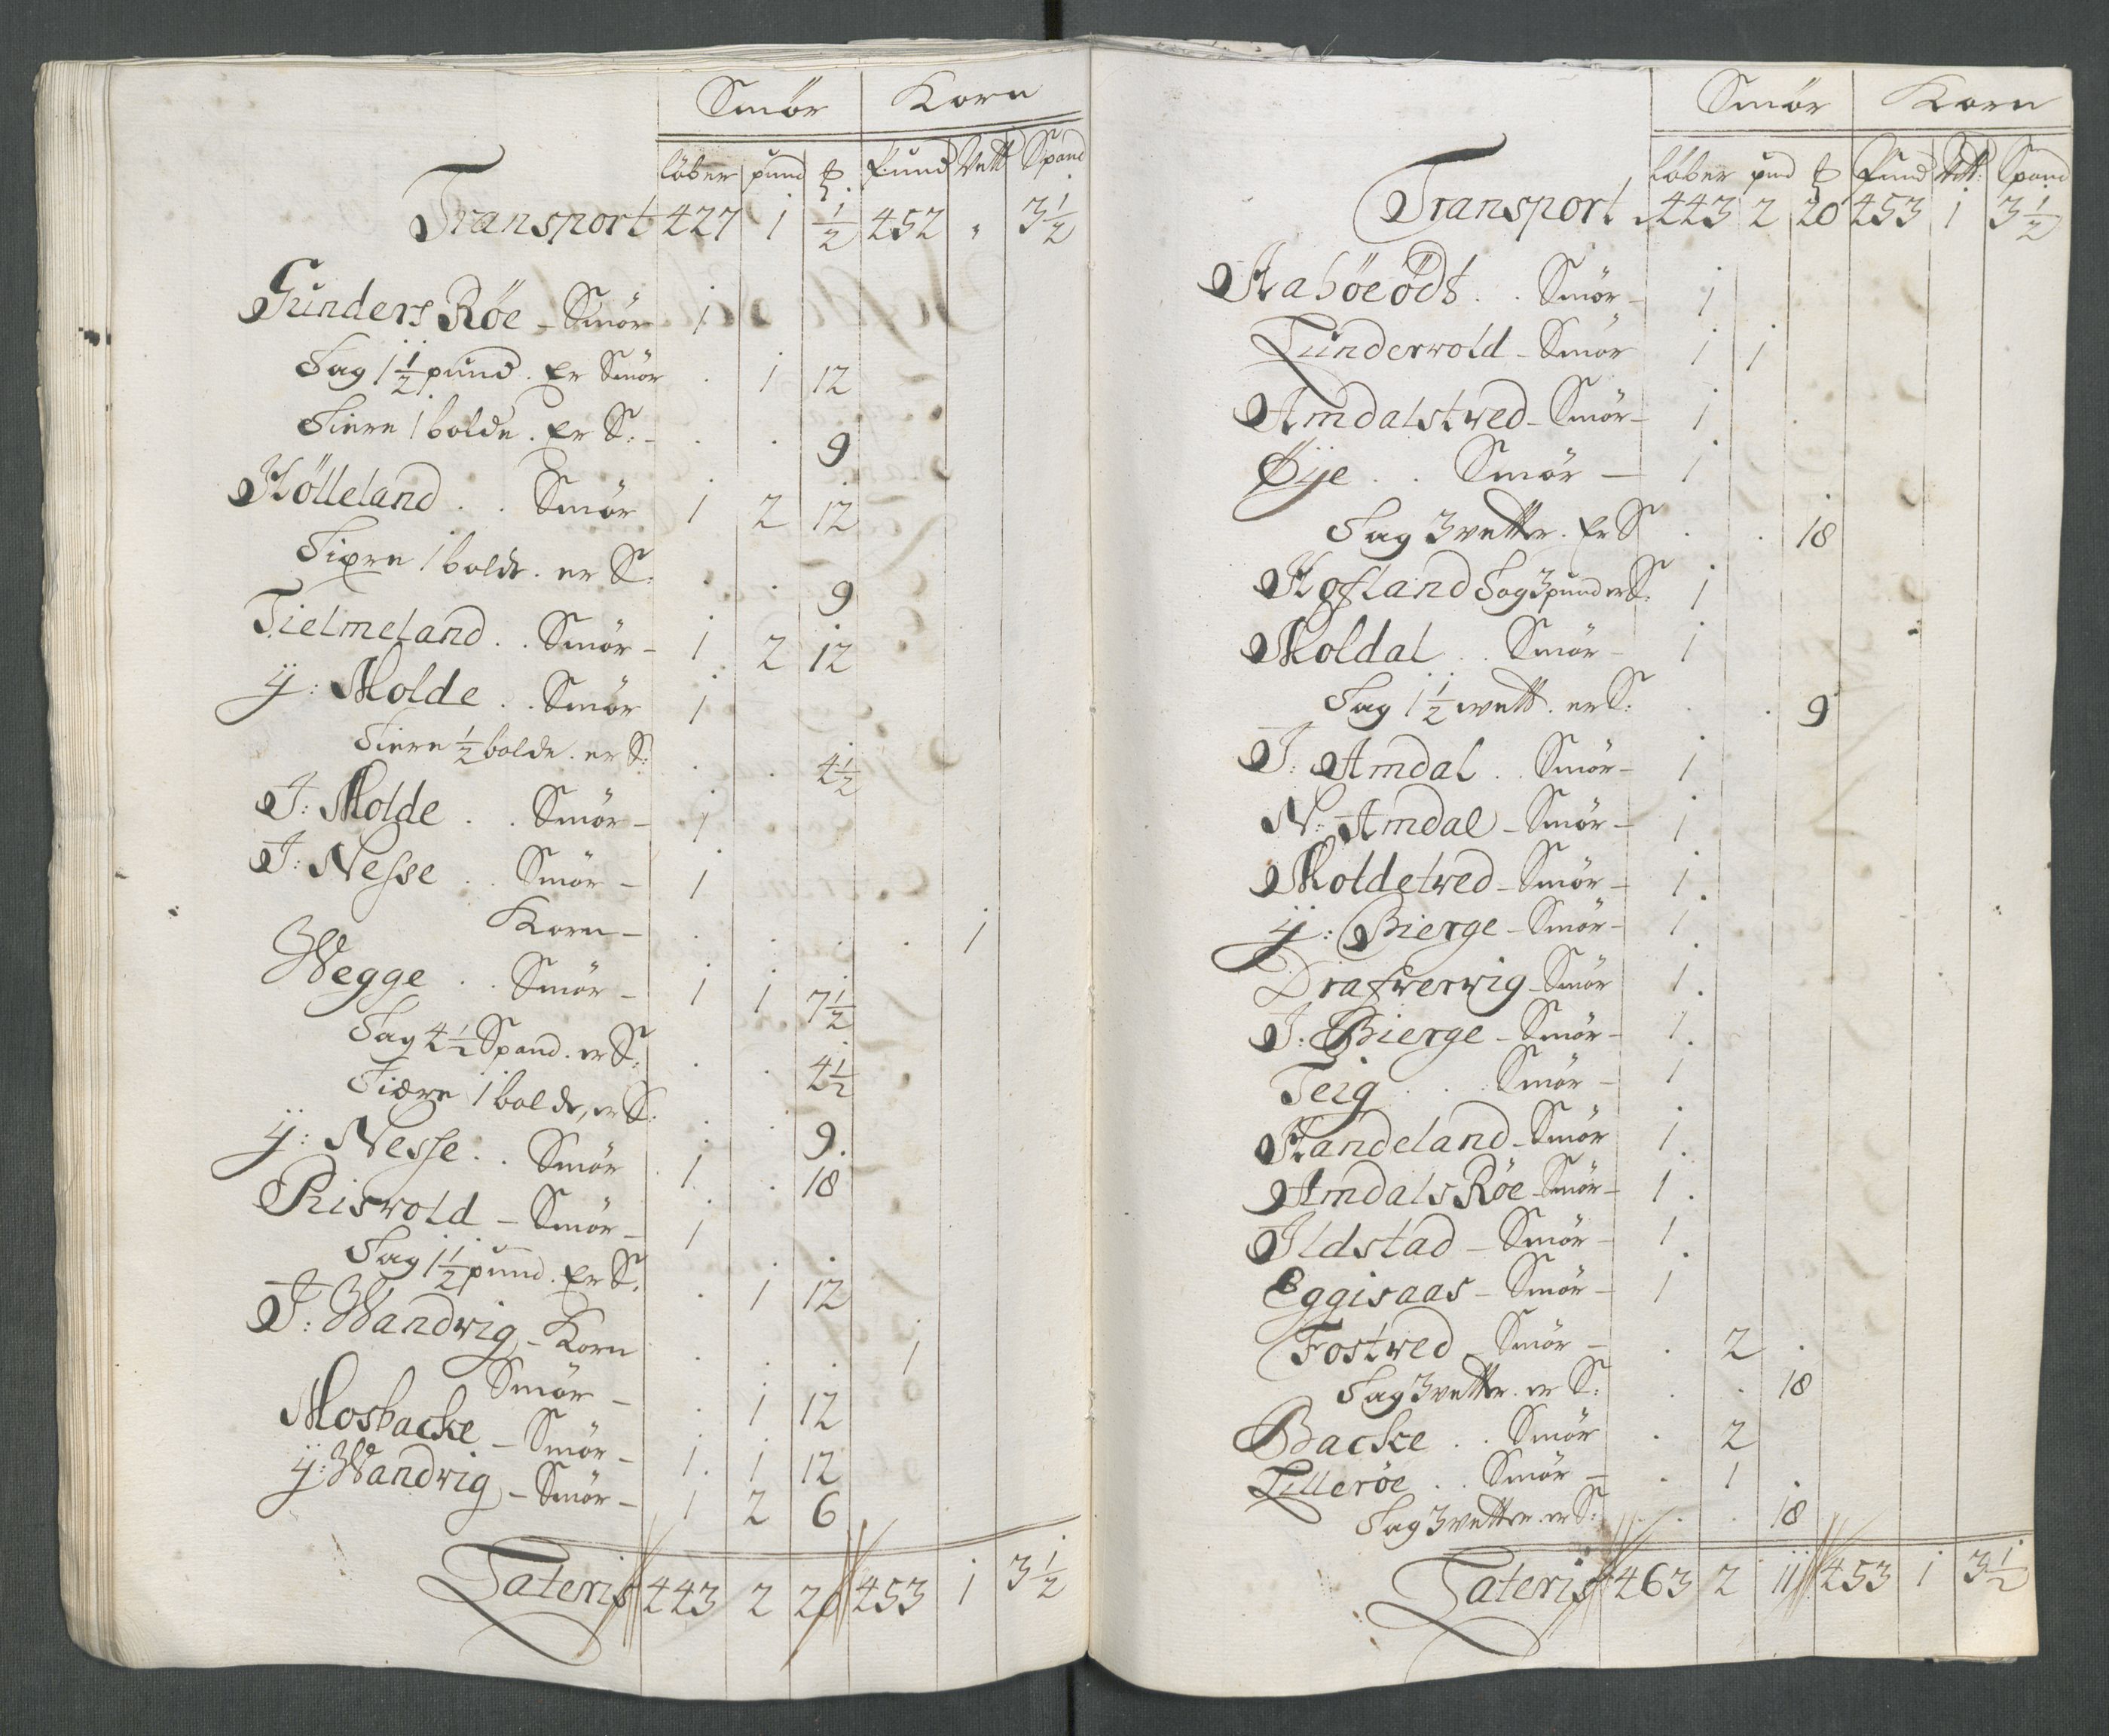 Smør Korn
løber pund ℔ Pund Vett Spand
Transport 427 1 1/2 452 " 3 1/2
Gunders Røe - Smør 1
Sag 1 1/2 pund. Er Smør . 1 12
Tiere 1 bolde. Er S: - . . 9
Hölleland . . Smør 1 2 12
Tiere 1 bolde. er S: . . 9
Tielmeland . . Smør - 1 2 12
ÿ: Molde . . Smør 1
Tiere 1/2 bolde. er S: . . 4 1/2
J: Molde . . Smør - 1
J: Nesse . . Smør - 1
Korn - . . . . 1
Wegge . . Smør - 1 1 7 1/2
Sag 4 1/2 Spand. er S: . . 4 1/2
Tiære 1 bolde, er S: . . 9.
ÿ: Nesse . . Smør 1 . 18
Risvold - Smør - 1
Sag 1 1/2 pund. Er S: . 1 12
J: Wandvig - Korn . . . 1
Smør - . 1 12
Mosbacke - Smør - 1 1 12
ÿ: Wandvig - Smør - 1 2 6
Lateris 443 2 20 453 1 3 1/2
Smør Korn
løber pund ℔ Pund Vett: Spand
Transport 443 2 20 453 1 3 1/2
Aabøeödt . . Smør - 1
Lundervold - Smør 1 1
Amdalstved - Smør - 1
Øÿe . . Smør - 1
Sag 3 vetter. Er S . . 18
Hofland Sag 3 pund er S: 1
Moldal . . Smør - 1
Sag 1 1/2 vett. er S: . . 9
J: Amdal . . Smør - 1
N: Amdal - Smør - 1
Moldetved - Smør - 1
ÿ: Bierge - Smør - 1
Drafwervig - Smør 1
J: Bierge - Smør - 1
Teig . . Smør - 1
Handeland - Smør 1
Amdals Røe - Smør - 1
Ildstad - Smør - 1
Eggisaas - Smør - 1
Fostved - Smør - . 2
Sag 3 vetter. er S: . . 18
Backe . . Smør . 2
Lillerøe . . Smør - . 1
Sag 3 vetter. er S: . . 18
Lateris 463 2 11 453 1 3 1/2